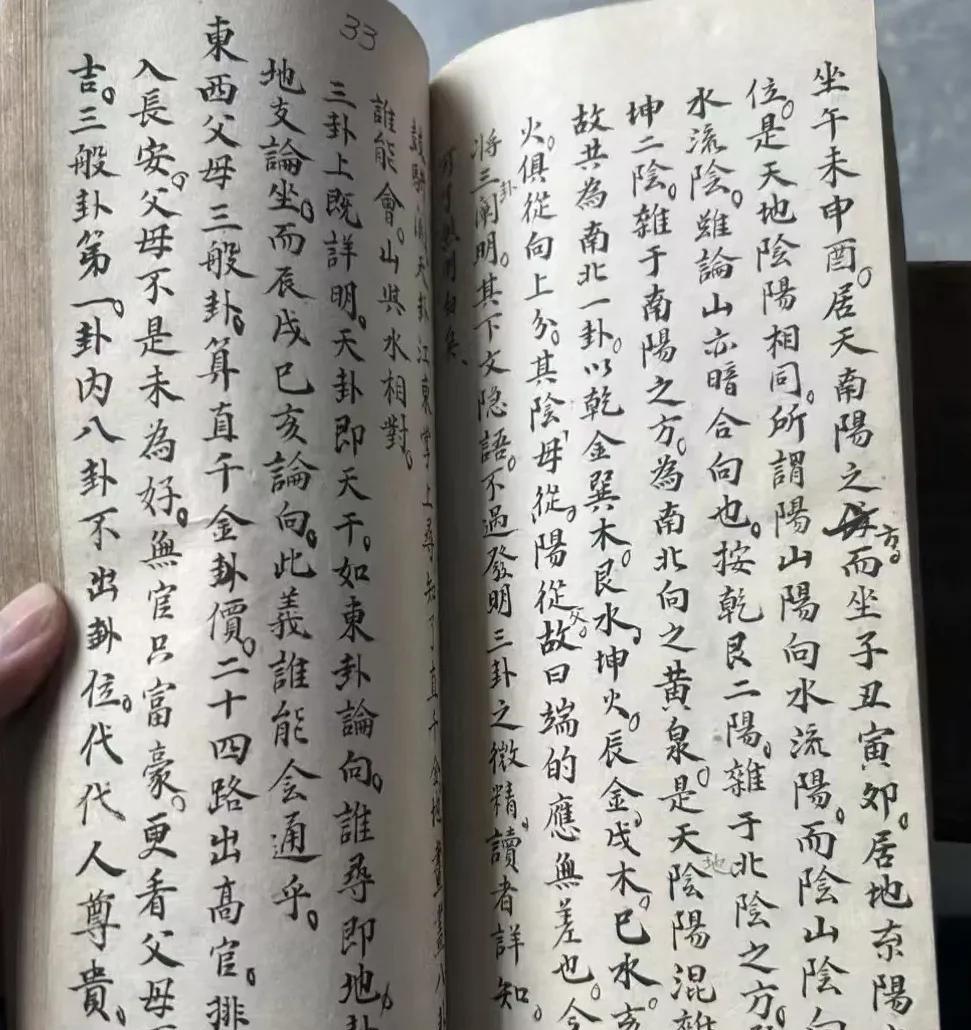 坐午未申酉。居天南陽之方。而坐子丑寅卯。居地京陽
位。是天地陰陽相同。所謂陽山陽向水流陽。而陰山陰向
水流陰。雖論山亦暗合向也。按乾艮二陽。雜于北陰之方。
坤二陰。雜于南陽之方。為南北向之黃泉。是天地陰陽混雜
故共為南北一卦。以乾金巽木。艮水。坤火。辰金。戌木。巳水。亥
火。俱從向上分。其陰母從。陽從父。故曰端的應無差也。今
將三卦闡明。其下文隐語。不過發明三卦之微精。讀者詳知。
可了然明白矣、
天卦江東掌上尋知了直千金
33
誰能會。山與水相對。
三卦上既詳明。天卦即天干。如東卦論向。誰尋即地
地支論坐。而辰戌巳亥論向。此義誰能会通乎。
東西父母三般卦。算直千金卦價。二十四路出高官。排
入長安。父母不是未為好。無官只富豪。更看父母
吉。三般卦第一。卦内八卦不出卦位。代代人尊貴。